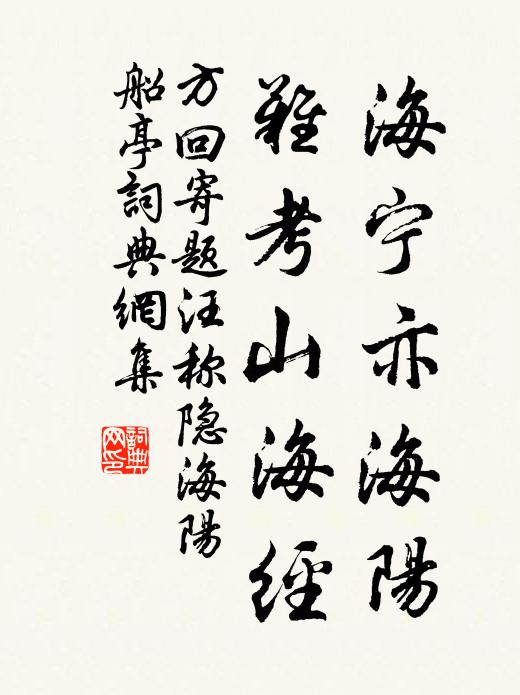 海宁亦海陽
難考山海經
方回寄题汪称隐海陽
船亭詞典網集
詞典网印